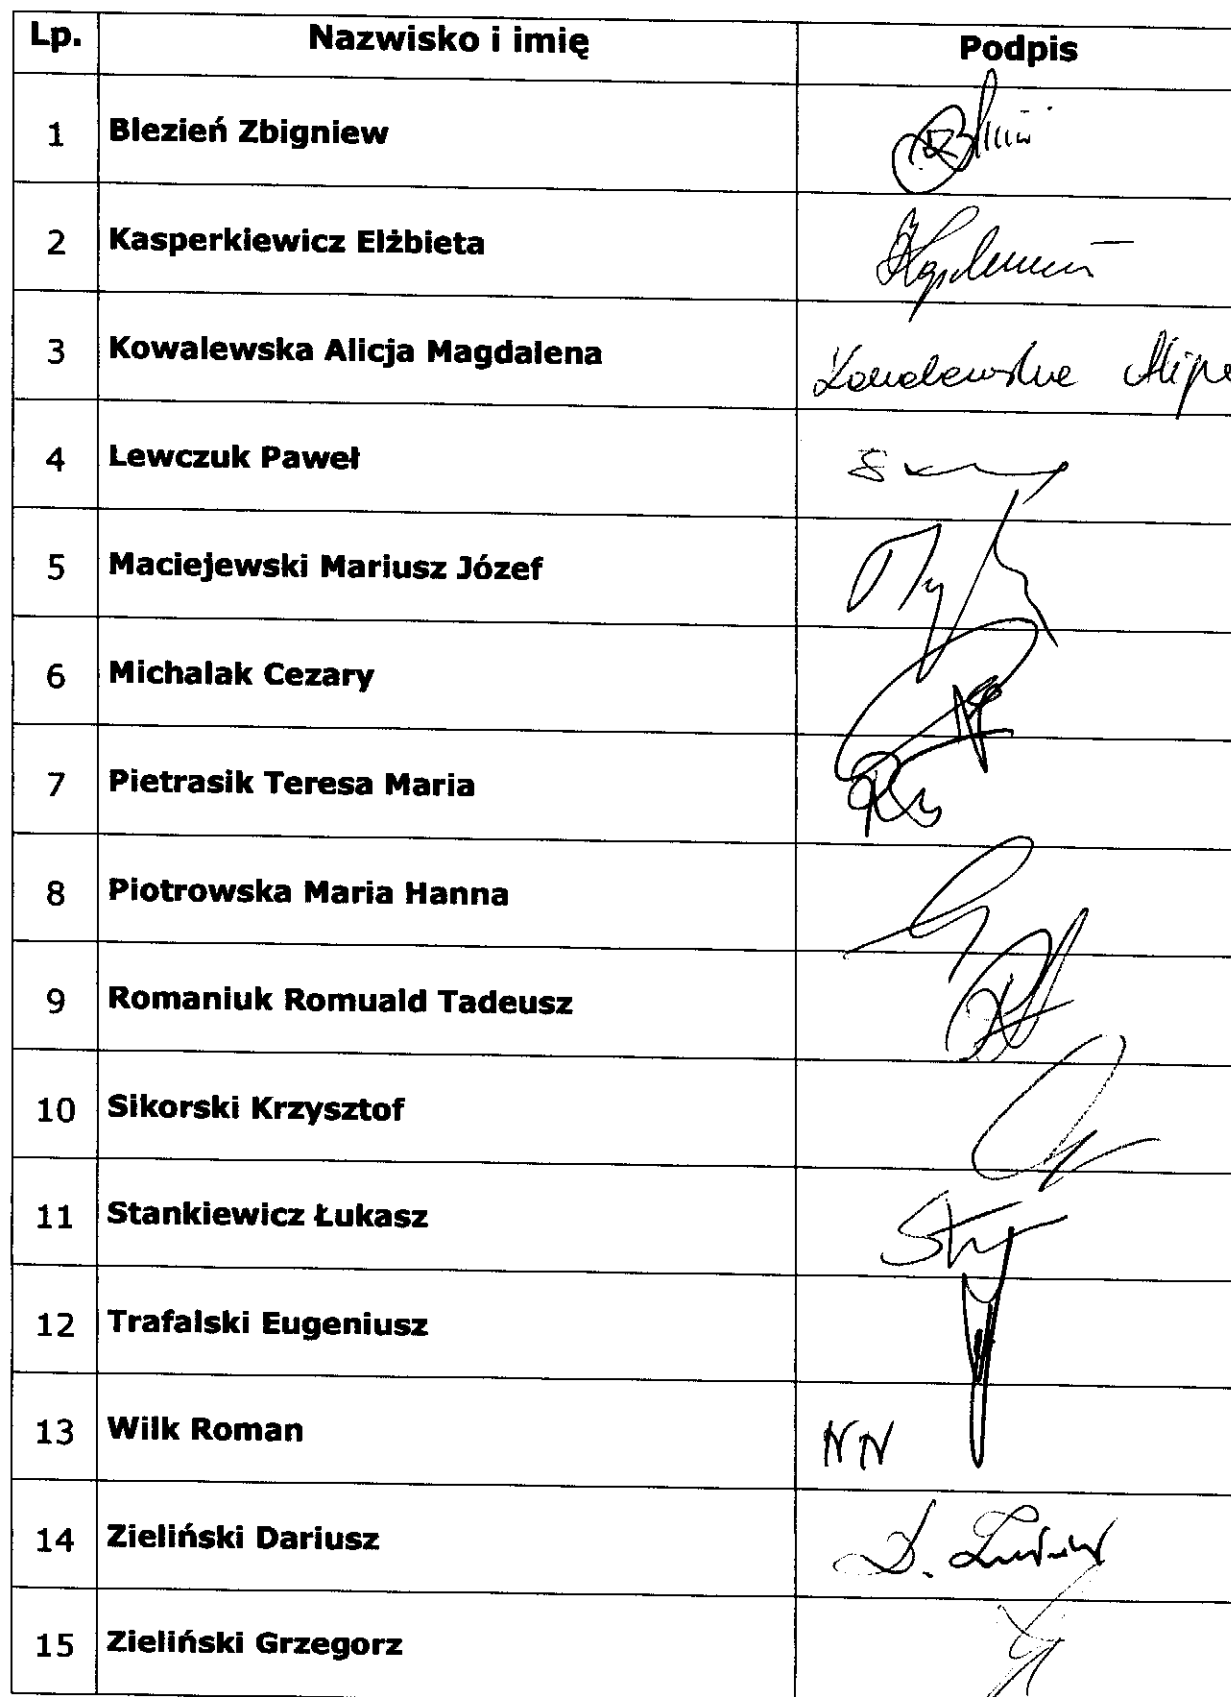 Lp. Nazwisko i imię Podpis
1 Blezień Zbigniew
2 Kasperkiewicz Elżbieta
3 Kowalewska Alicja Magdalena Kowalewska Alicja
4 Lewczuk Paweł
5 Maciejewski Mariusz Józef
6 Michalak Cezary
7 Pietrasik Teresa Maria
8 Piotrowska Maria Hanna
9 Romaniuk Romuald Tadeusz
10 Sikorski Krzysztof
11 Stankiewicz Łukasz
12 Trafalski Eugeniusz
13 Wilk Roman NN
14 Zieliński Dariusz D.
15 Zieliński Grzegorz